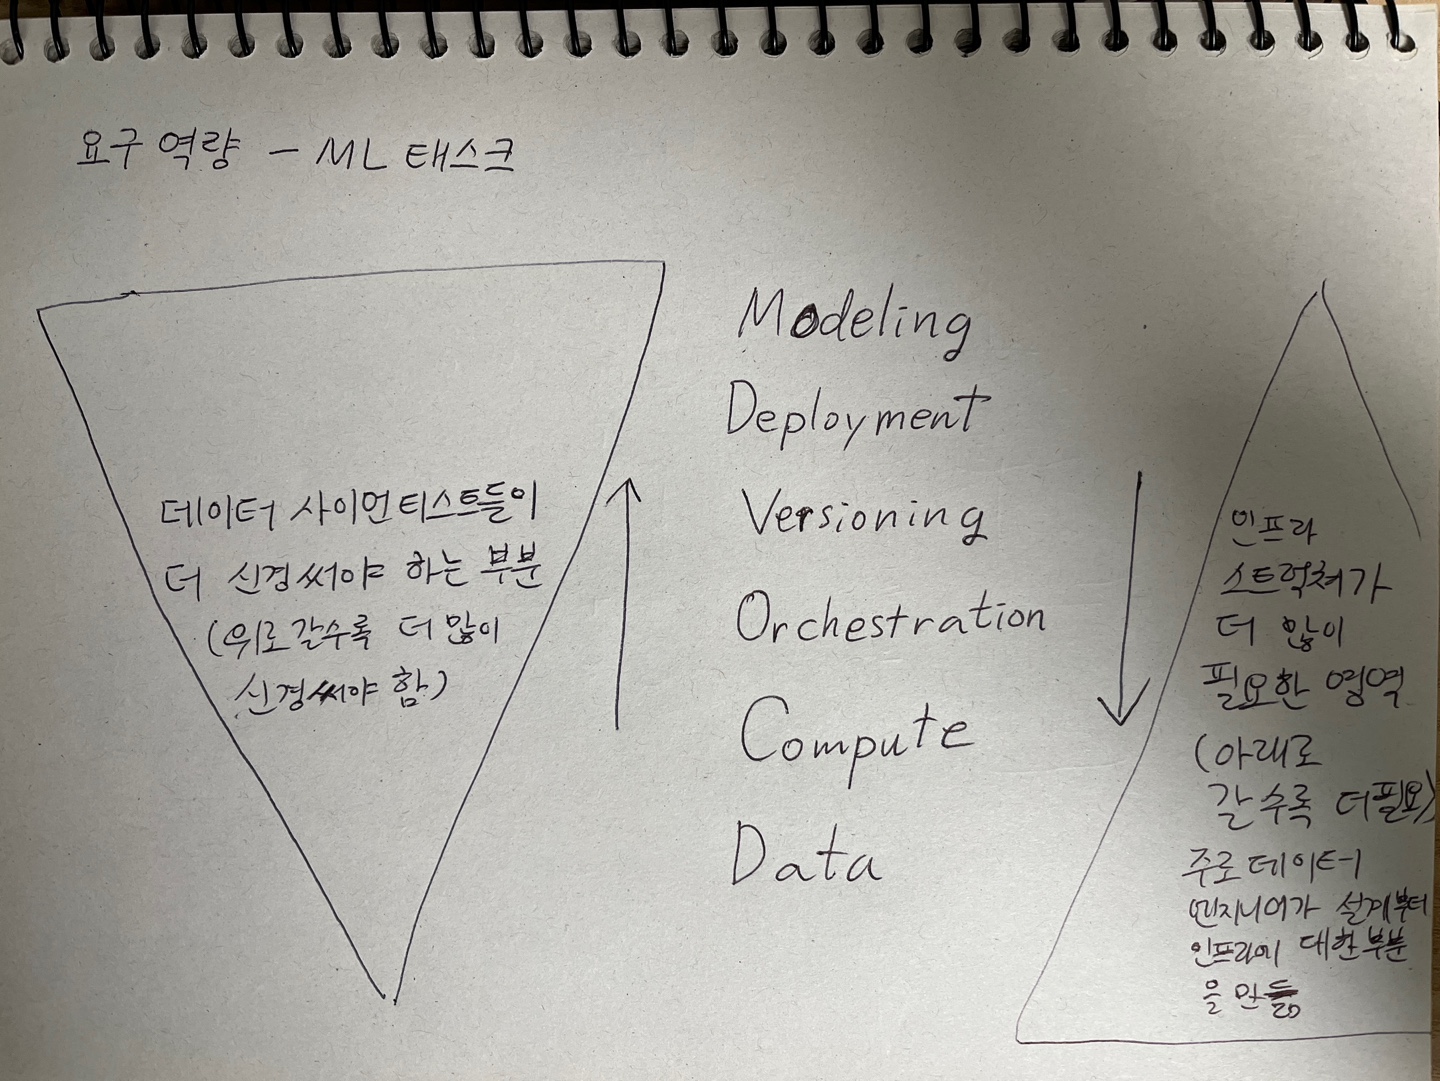 요구 역량 - ML 태스크
데이터 사이언티스트들이
더 신경써야 하는 부분
(위로갈수록 더 많이
신경써야 함)
Modeling
Deployment
Versioning
Orchestration
Compute
Data
인프라
스트럭쳐가
더 많이
필요한 영역
(아래로
갈수록 더필요)
주로데이터
엔지니어가 설계부터
인프라에 대한부분
을 만듦